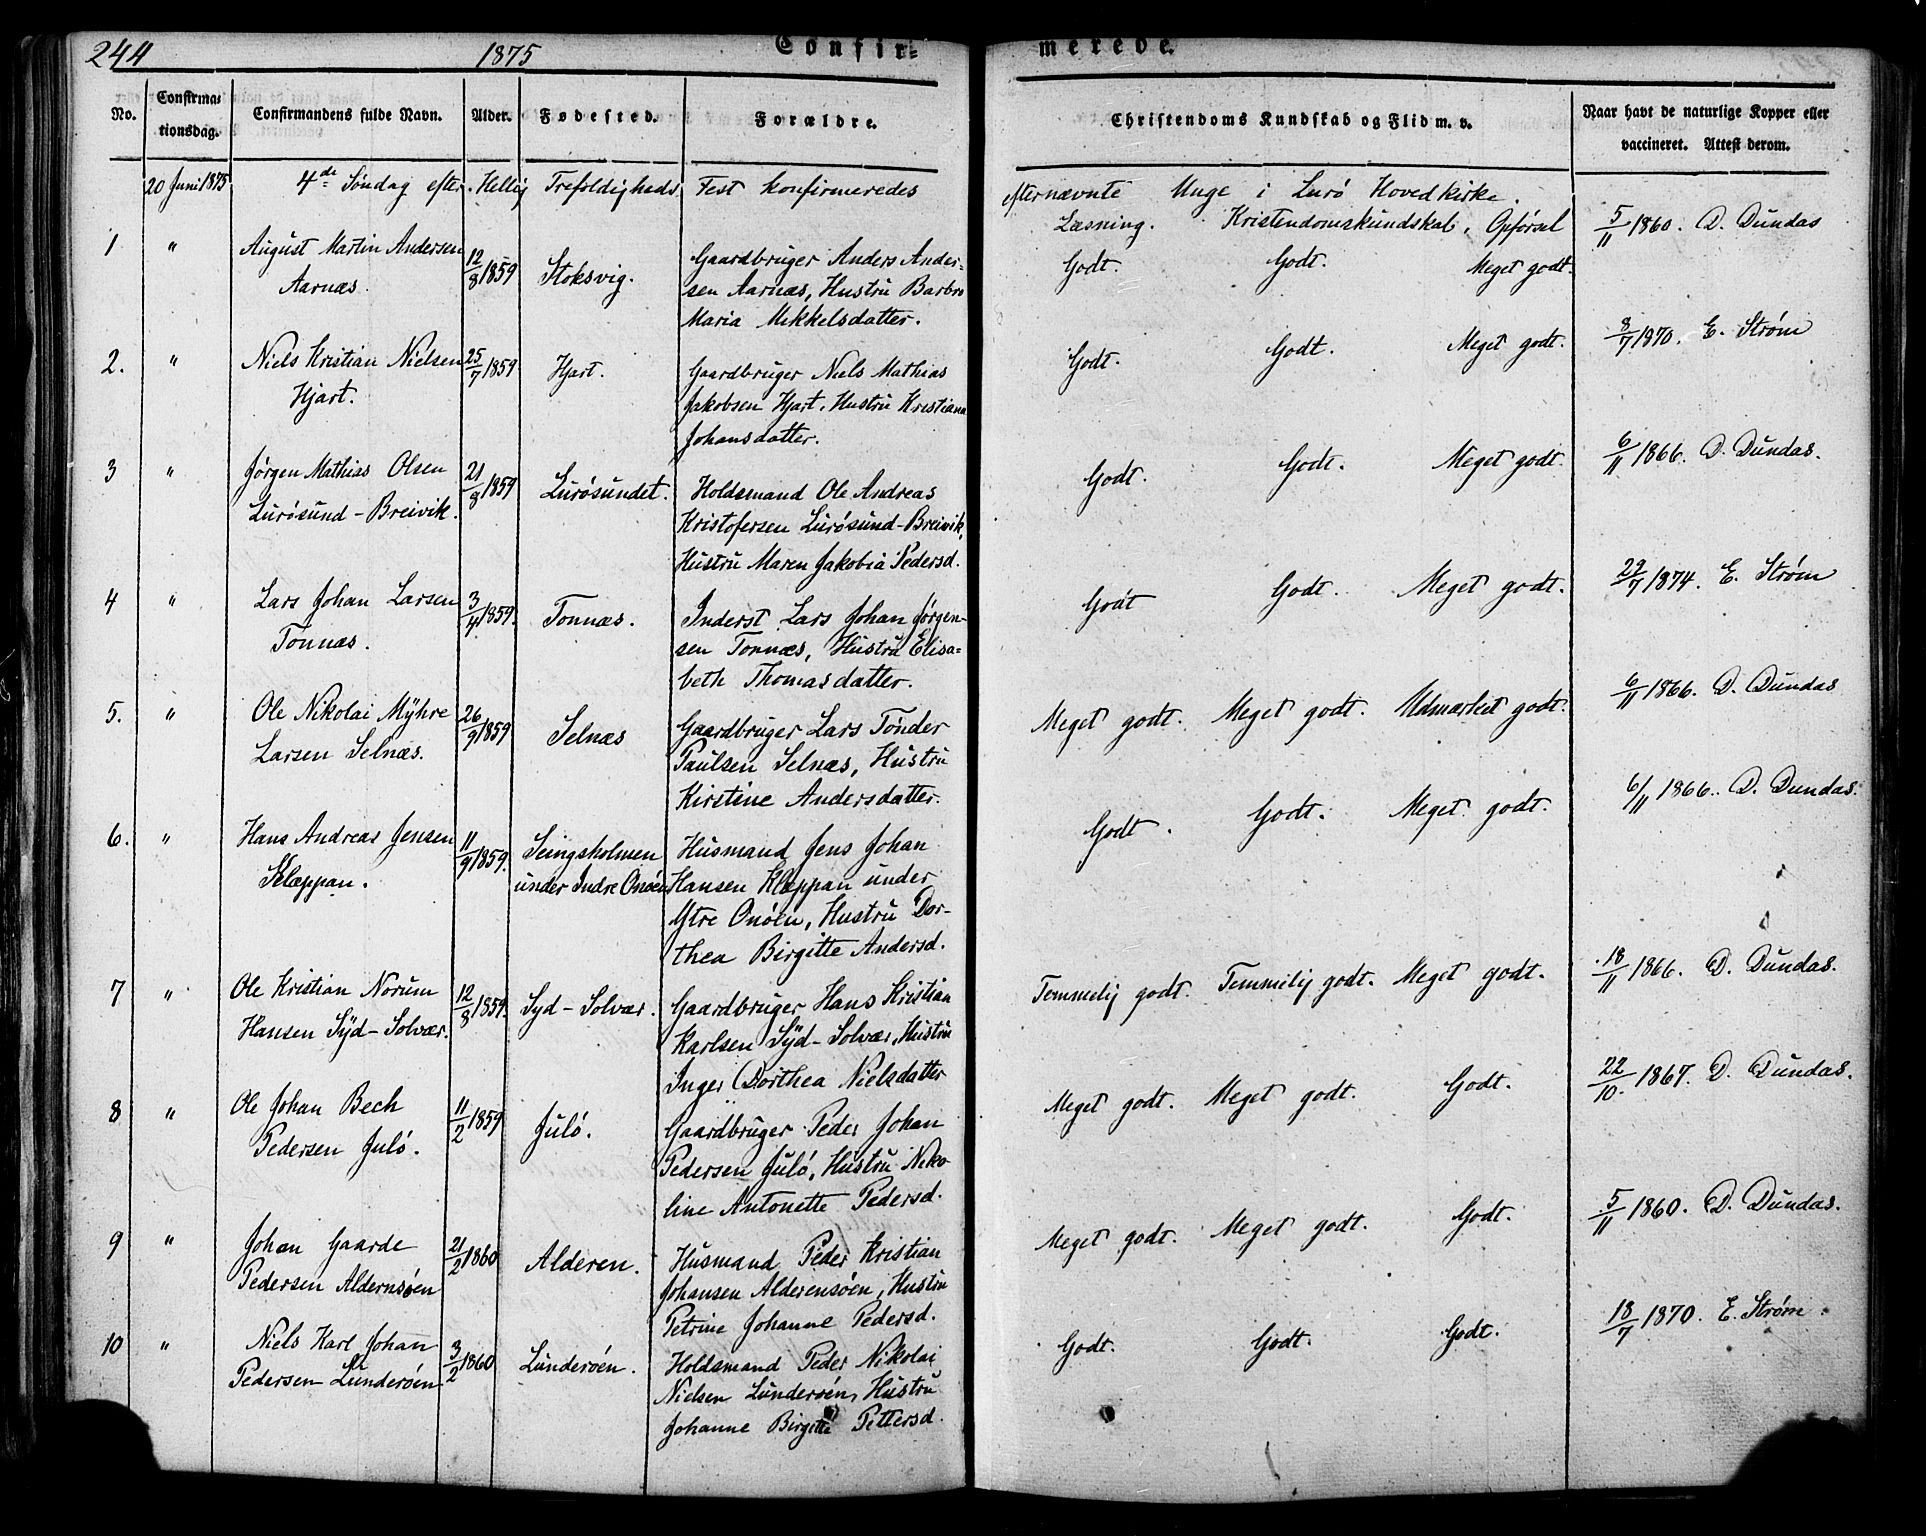 244
1875
Confir=
merede.
No.
Confirma=
tionsdag.
Confirmandens fulde Navn.
Alder.
Fødested.
Forældre.
Christendoms Kundskab og Flid m. v.
Naar havt de naturlige Kopper eller
vaccineret. Attest derom.
20 Juni 1875 4de Søndag efter Hellig Trefoldigheds Fest konfirmeredes efternævnte Unge i Lurø Hovedkirke.
Læsning. Kristendomskundskab, Opførsel
1 " August Martin Andersen
Aarnæs.
12/8 1859
Stoksvig.
Gaardbruger Anders Ander=
sen Aarnæs, Hustru Barbro
Maria Mikkelsdatter.
Godt. Godt. Meget godt.
5/11 1860. D. Dundas
2. " Niels Kristian Nielsen
Hjart.
25/7 1859
Hjart.
Gaardbruger Niels Mathias
Jakobsen Hjart, Hustru Kristiana
Johansdatter.
Godt. Godt. Meget godt.
8/7 1870. E. Strøm
3 " Jørgen Mathias Olsen
Lurøsund-Breivik.
21/8 1859
Lurøsundet.
Holdsmand Ole Andreas
Kristofersen Lurøsund-Breivik,
Hustru Maren Jakobia Pedersd.
Godt. Godt. Meget godt.
6/11 1866. D. Dundas.
4 " Lars Johan Larsen
Tonnæs.
3/4 1859.
Tonnæs.
Inderst Lars Johan Jørgen-
sen Tonnæs, Hustru Elisa=
beth Thomasdatter.
Godt Godt. Meget godt.
29/7 1874. E. Strøm
5. " Ole Nikolai Myhre
Larsen Selnæs.
26/9 1859
Selnæs
Gaardbruger Lars Tønder
Paulsen Selnæs, Hustru
Kirstine Andersdatter.
Meget godt. Meget godt. Udmærket godt.
6/11 1866. D. Dundas
6. " Hans Andreas Jensen
Klæppan.
11/9 1859.
Seingsholmen
under Indre Onøen
Husmand Jens Johan
Hansen Klæppan under
Ytre Onøen, Hustru Dor-
thea Birgitte Andersd.
Godt. Godt. Meget godt.
6/11 1866. D. Dundas.
7 " Ole Kristian Norum
Hansen Syd-Solvær.
12/8 1859.
Syd-Solvær.
Gaardbruger Hans Kristian
Karlsen Syd-Solvær, Hustru
Inger Dorthea Nielsdatter
Temmelig godt. Temmelig godt. Meget godt.
18/11 1866. D. Dundas.
8 " Ole Johan Bech
Pedersen Julø.
11/2 1859
Julø.
Gaardbruger Peder Johan
Pedersen Julø, Hustru Niko-
line Antonette Pedersd.
Meget godt. Meget godt. Godt.
22/10 1867. D. Dundas.
9 " Johan Gaarde
Pedersen Aldernsøen
21/2 1860
Alderen.
Husmand Peder Kristian
Johansen Alderensøen, Hustru
Petrine Johanne Pedersd.
Meget godt. Meget godt. Godt.
5/11 1860. D. Dundas.
10 " Niels Karl Johan
Pedersen Lunderøen
3/2 1860
Lunderøen.
Holdsmand Peder Nikolai
Nielsen Lunderøen, Hustru
Johanne Birgitte Pettersd.
Godt. Godt. Godt.
18/7 1870. E. Strøm.